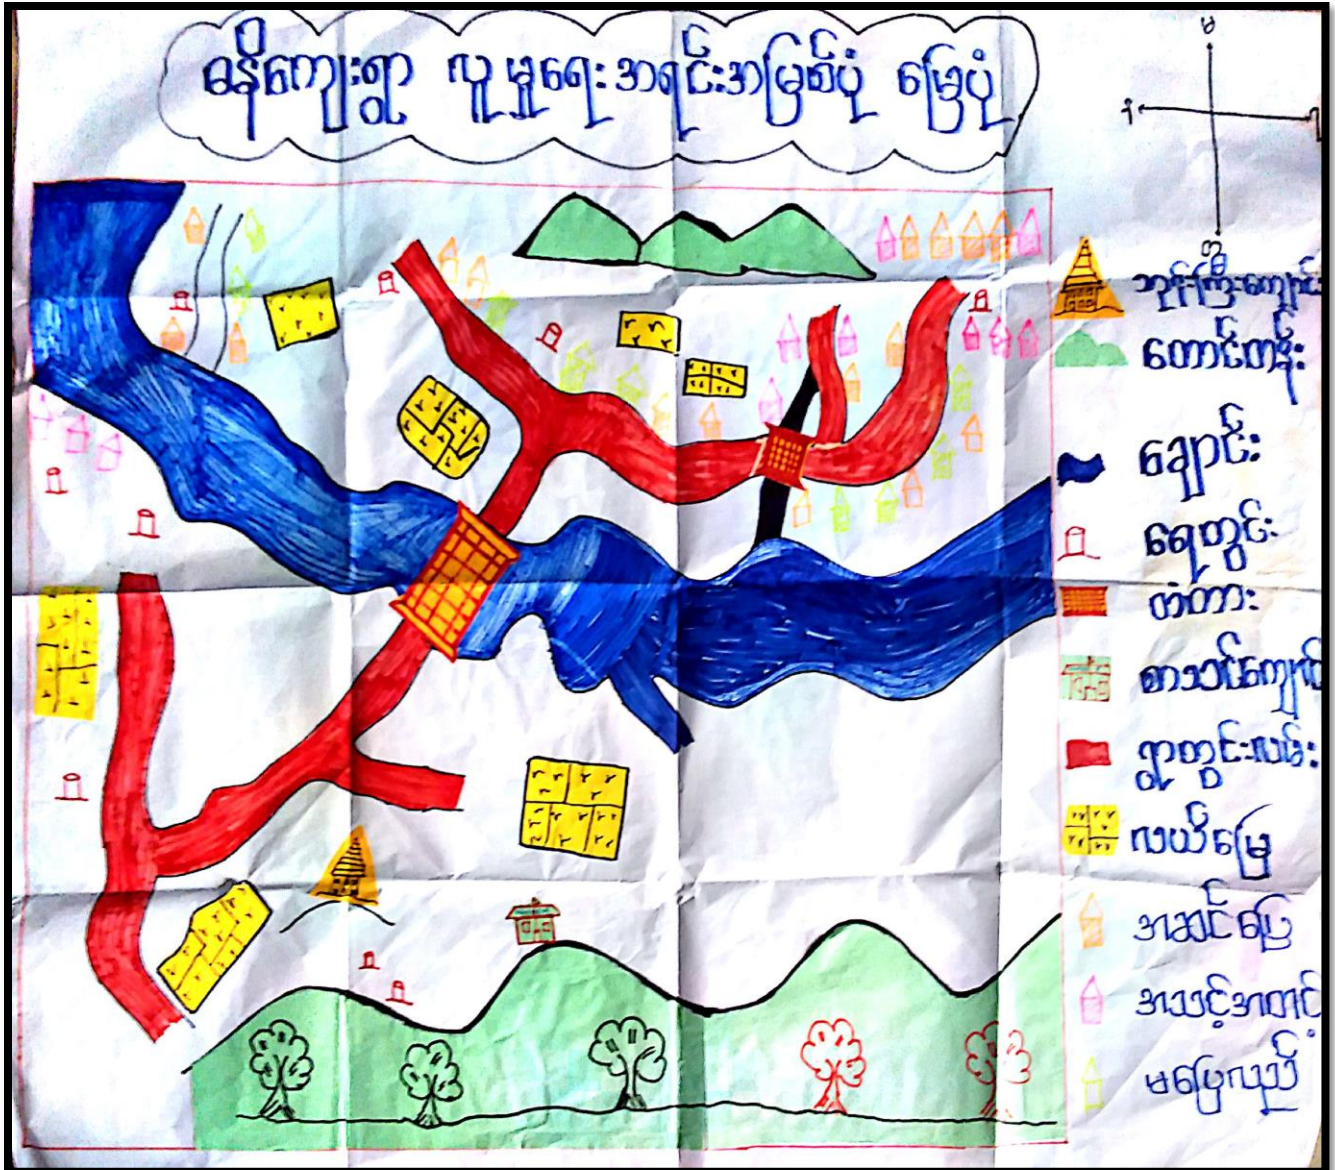 ဓနိကျေးရွာ လူမှုရေးအရင်းအမြစ်ပုံ မြေပုံ
မ
တ
ဘုန်းကြီးကျောင်း
တောင်တန်း
ချောင်း
ရေတွင်း
တံတား
စာသင်ကျောင်း
ရွာတွင်းလမ်း
လယ်မြေ
အဆင်ပြေ
အသင့်အတင့်
မပြေလည်